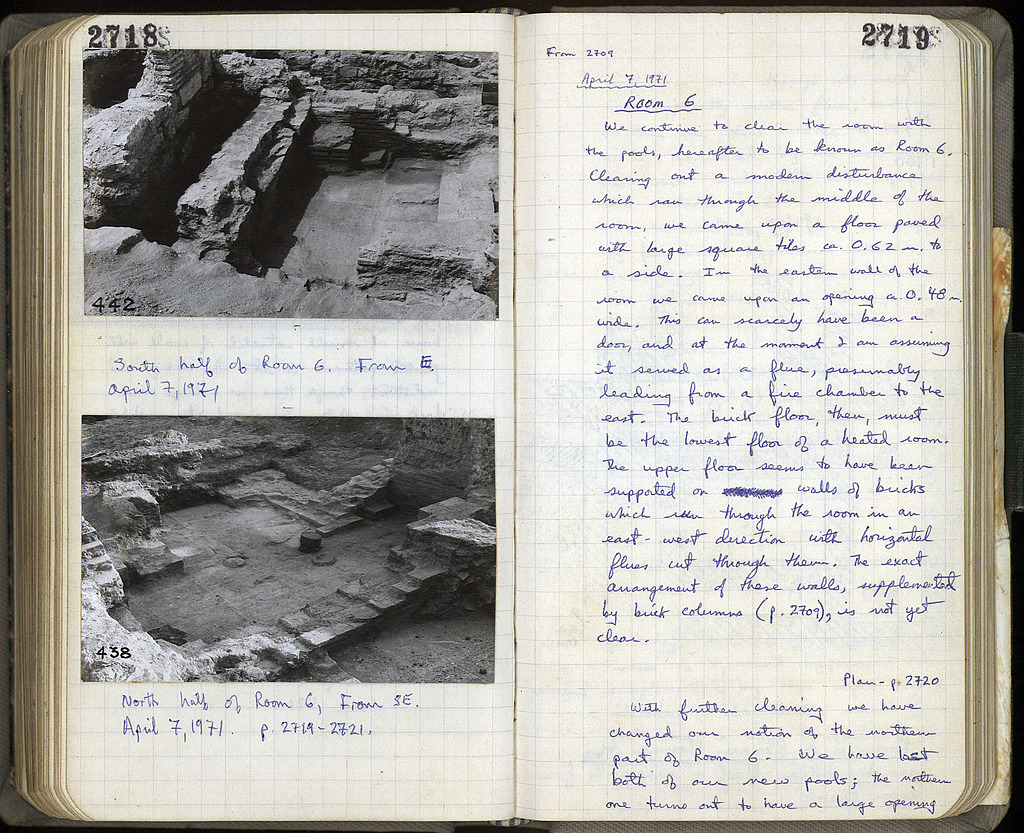 2718
442
South half of Room 6. From E.
April 7, 1971
438
North half of Room 6, From SE.
April 7, 1971. p. 2719-2721.
2719
From 2709
April 7, 1971
Room 6
We continue to clear the room with
the pools, hereafter to be known as Room 6.
Clearing out a modern disturbance
which ran through the middle of the
room, we came upon a floor paved
with large square tiles ca. 0.62 m. to
a side. In the eastern wall of the
room we came upon an opening ca. 0.48 m.
wide. This can scarcely have been a
door, and at the moment I am assuming
it served as a flue, presumably
leading from a fire chamber to the
east. The brick floor, then, must
be the lowest floor of a heated room.
The upper floor seems to have been
supported on walls of bricks
which run through the room in an
east-west direction with horizontal
flues cut through them. The exact
arrangement of these walls, supplemented
by brick columns (p. 2709), is not yet
clear.
Plan - p. 2720
With further cleaning we have
changed our notion of the northern
part of Room 6. We have lost
both of our new pools; the northern
one turns out to have a large opening